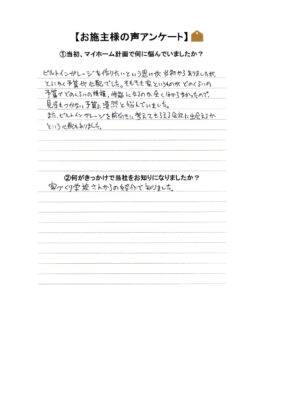 【お施主様の声アンケート】
①当初、マイホーム計画で何に悩んでいましたか？
ビルトインガレージを作りたいという思いが当初からありましたが、
とにかく予算が心配でした。そもそも家というものがどのくらいの
予算でどのくらいの規模、性能になるのか全く分からなかったので、
見当もつかない予算に漠然と悩んでいました。
また、ビルトインガレージを前向きに考えてもらえる会社に出会えるか
という心配もありました。
②何がきっかけで当社をお知りになりましたか？
家づくり学校さんからの紹介で知りました。